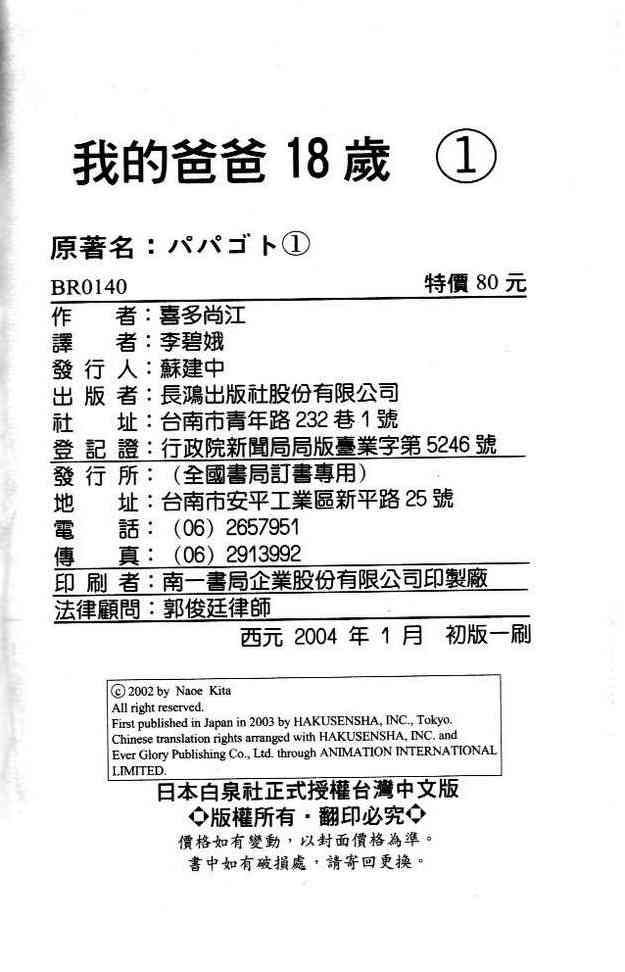 我的爸爸 18 歲 ①
原著名：パパゴト①
BR0140 特價 80 元
作者：喜多尚江
譯者：李碧娥
發行人：蘇建中
出版者：長鴻出版社股份有限公司
社址：台南市青年路 232 巷 1 號
登記證：行政院新聞局局版臺業字第 5246 號
發行所：（全國書局訂書專用）
地址：台南市安平工業區新平路 25 號
電話：（06）2657951
傳真：（06）2913992
印刷者：南一書局企業股份有限公司印製廠
法律顧問：郭俊廷律師
西元 2004 年 1 月 初版一刷
© 2002 by Naoe Kita
All right reserved.
First published in Japan in 2003 by HAKUSENSHA, INC., Tokyo.
Chinese translation rights arranged with HAKUSENSHA, INC. and
Ever Glory Publishing Co., Ltd. through ANIMATION INTERNATIONAL
LIMITED.
日本白泉社正式授權台灣中文版
◇版權所有・翻印必究◇
價格如有變動，以封面價格為準。
書中如有破損處，請寄回更換。